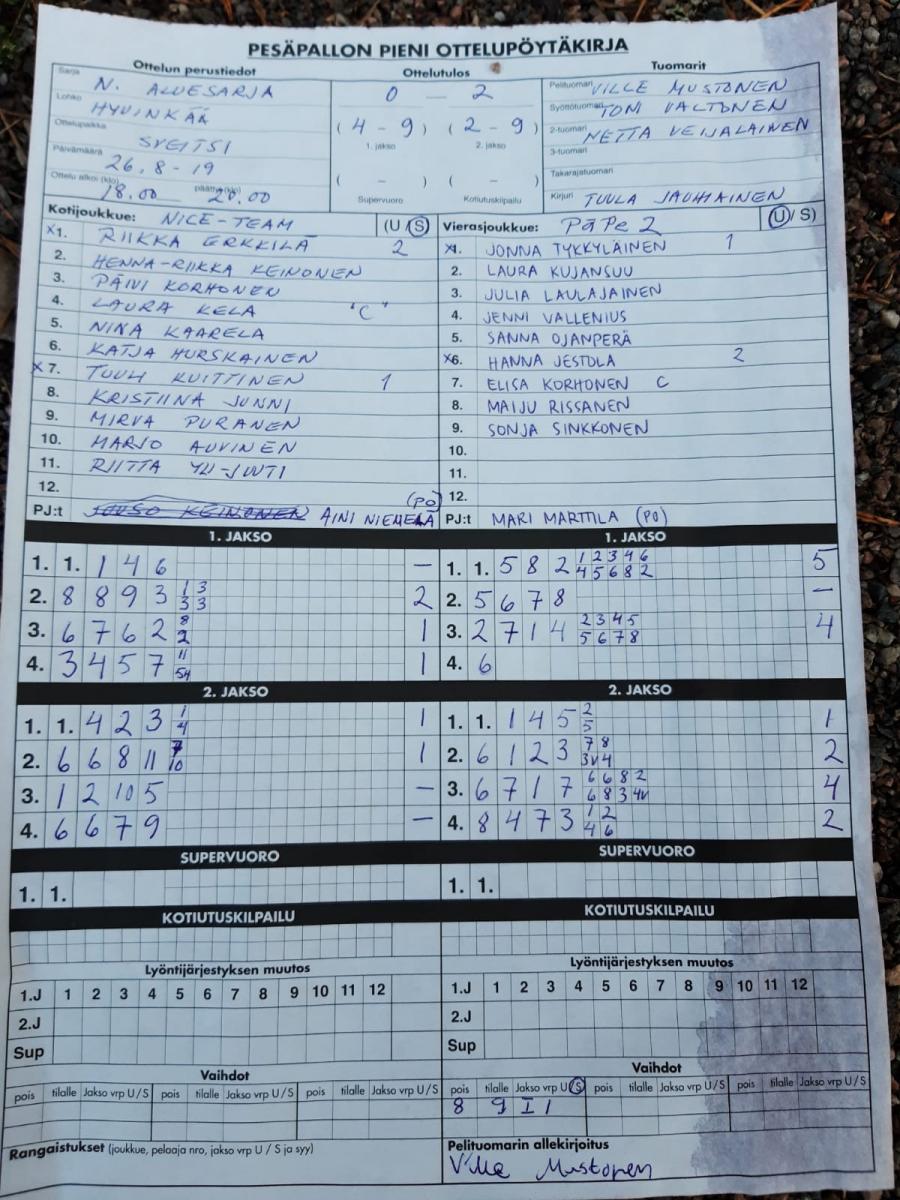 PESÄPALLON PIENI OTTELUPÖYTÄKIRJA
Ottelun perustiedot
Sarja N. ALUESARJA
Lohko HYVINKÄÄ
Ottelupaikka SVEITSI
Päivämäärä 26.8-19
Ottelu alkoi (klo) 18.00 päättyi (klo) 20.00
Ottelutulos
0 — 2
(4 - 9) (2 - 9)
1. jakso 2. jakso
( - ) ( - )
Supervuoro Kotiutuskilpailu
Tuomarit
Pelituomari VILLE MUSTONEN
Syöttötuomari TONI VALTONEN
2-tuomari NETTA VEIJALAINEN
3-tuomari
Takarajatuomari
Kirjuri TUULA JAUHIAINEN
Kotijoukkue: NICE-TEAM (U/S)
x1. RIIKKA ERKKILÄ 2
2. HENNA-RIIKKA KEINONEN
3. PÄIVI KORHONEN
4. LAURA KELA "C"
5. NINA KAARELA
6. KATJA HURSKAINEN
x7. TUULI KUITTINEN 1
8. KRISTIINA JUNNI
9. MIRVA PURANEN
10. MARJO AUVINEN
11. RIITTA YLI-JUUTI
12.
PJ:t JOUSO KEINONEN AINI NIEMELÄ (PO)
Vierasjoukkue: PäPe 2 (U/S)
x1. JONNA TYKKYLÄINEN 1
2. LAURA KUJANSUU
3. JULIA LAULAJAINEN
4. JENNI VALLENIUS
5. SANNA OJANPERÄ
x6. HANNA JESTOLA 2
7. ELISA KORHONEN C
8. MAIJU RISSANEN
9. SONJA SINKKONEN
10.
11.
12.
PJ:t MARI MARTTILA (PO)
1. JAKSO
1. 1. 1 4 6 —
2. 8 8 9 3 1 3 2
3 3
3. 6 7 6 2 8 1
2
4. 3 4 5 7 11 1
5H
1. JAKSO
1. 1. 5 8 2 1 2 3 4 6 5
4 5 6 8 2
2. 5 6 7 8 —
3. 2 7 1 4 2 3 4 5 4
5 6 7 8
4. 6
2. JAKSO
1. 1. 4 2 3 1 1
4
2. 6 6 8 11 7 1
10
3. 1 2 10 5 —
4. 6 6 7 9 —
2. JAKSO
1. 1. 1 4 5 2 1
5
2. 6 1 2 3 7 8 2
3V 4
3. 6 7 1 7 6 6 8 2 4
6 8 3 4V
4. 8 4 7 3 1 2 2
4 6
SUPERVUORO
1. 1.
SUPERVUORO
1. 1.
KOTIUTUSKILPAILU
KOTIUTUSKILPAILU
Lyöntijärjestyksen muutos
1.J 1 2 3 4 5 6 7 8 9 10 11 12
2.J
Sup
Lyöntijärjestyksen muutos
1.J 1 2 3 4 5 6 7 8 9 10 11 12
2.J
Sup
Vaihdot
pois tilalle Jakso vrp U/S pois tilalle Jakso vrp U/S pois tilalle Jakso vrp U/S
Vaihdot
pois tilalle Jakso vrp U/S pois tilalle Jakso vrp U/S pois tilalle Jakso vrp U/S
8 9 I 1
Rangaistukset (joukkue, pelaaja nro, jakso vrp U / S ja syy)
Pelituomarin allekirjoitus
Ville Mustonen